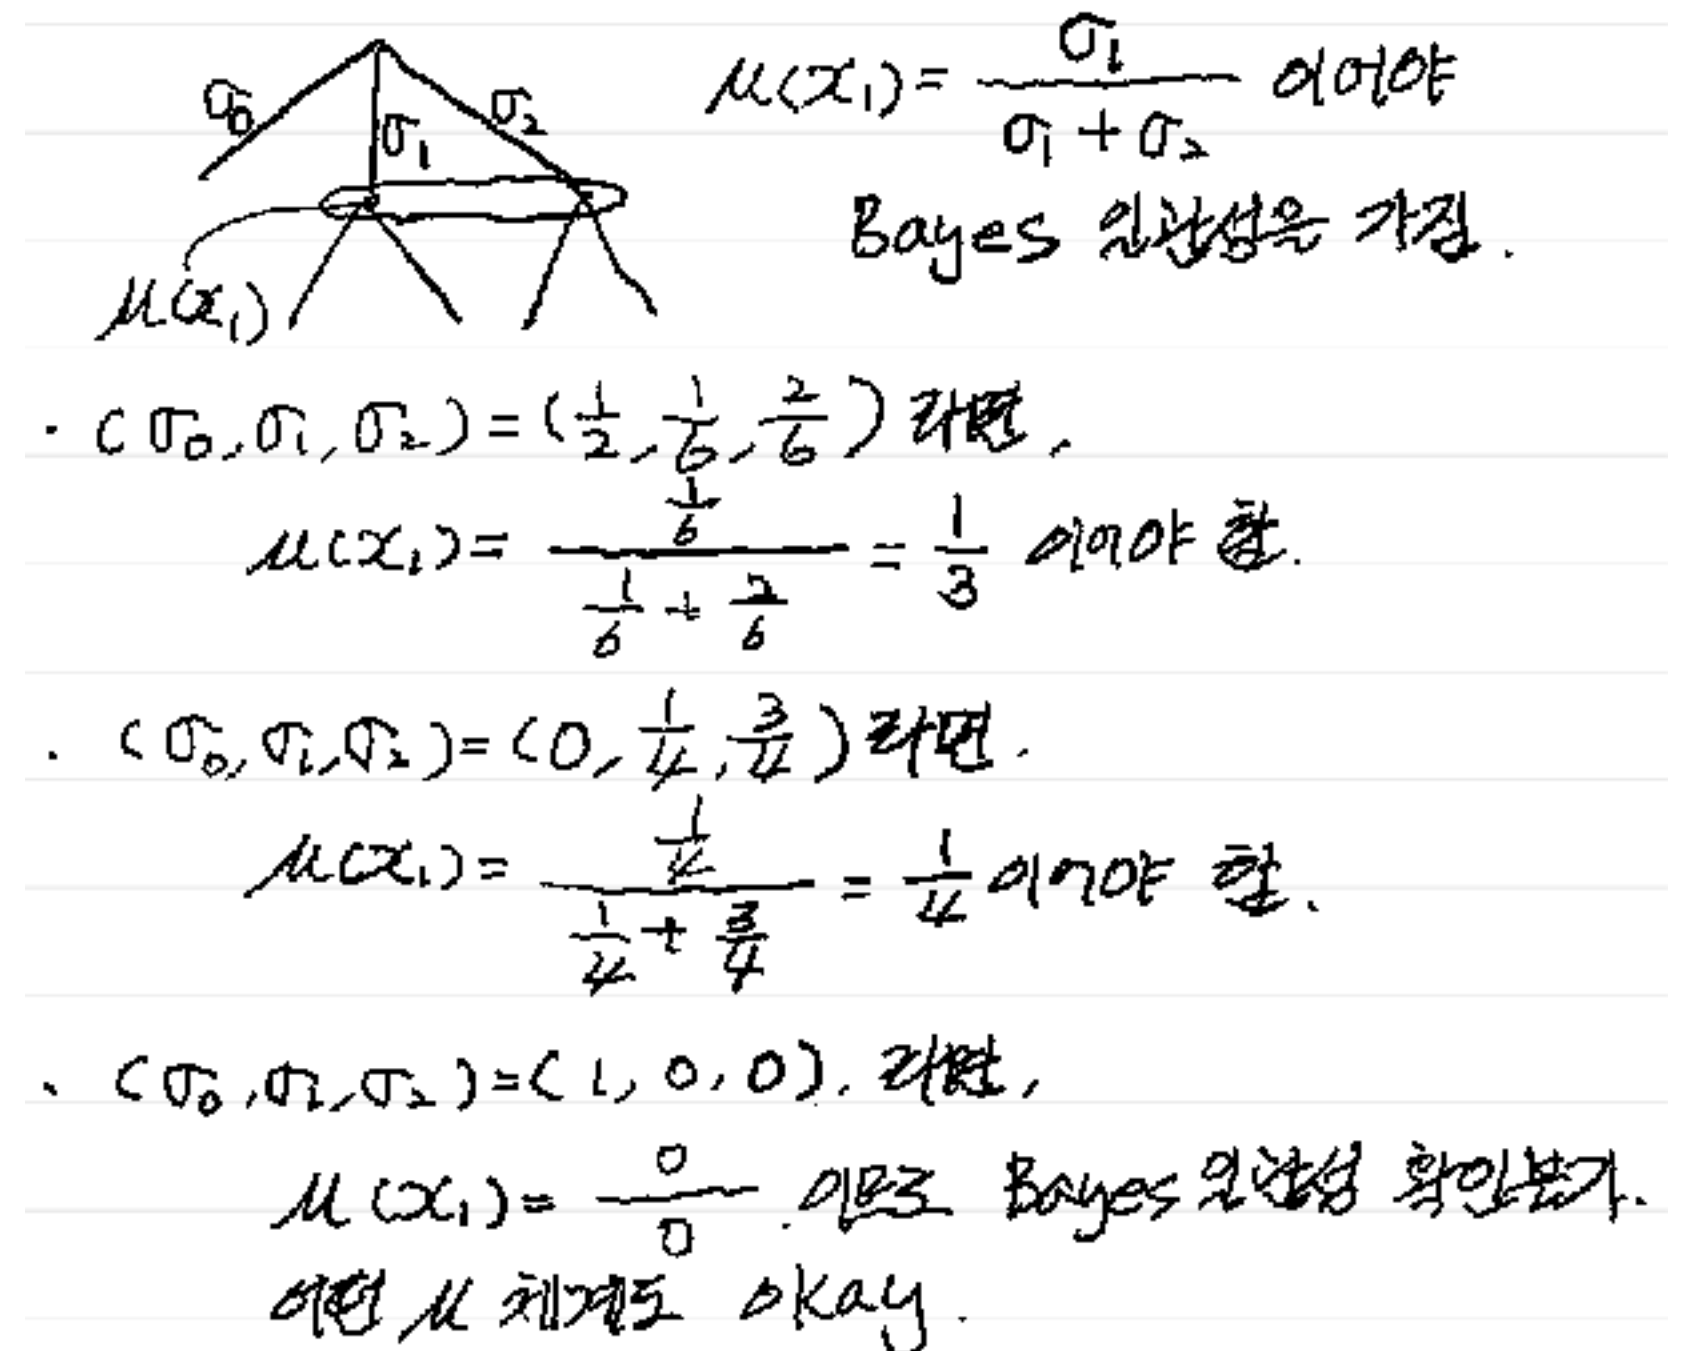 σ₀ σ₁ σ₂ μ(x₁) = σ₁ / (σ₁ + σ₂) 이어야
Bayes 일관성을 가짐.
μ(x₁)
· (σ₀, σ₁, σ₂) = (1/2, 1/6, 2/6) 라면,
μ(x₁) = (1/6) / (1/6 + 2/6) = 1/3 이어야 함.
· (σ₀, σ₁, σ₂) = (0, 1/4, 3/4) 라면.
μ(x₁) = (1/4) / (1/4 + 3/4) = 1/4 이어야 함.
· (σ₀, σ₁, σ₂) = (1, 0, 0). 라면,
μ(x₁) = 0/0 .이므로 Bayes 일관성 확인불가.
어떤 μ 체계도 okay.